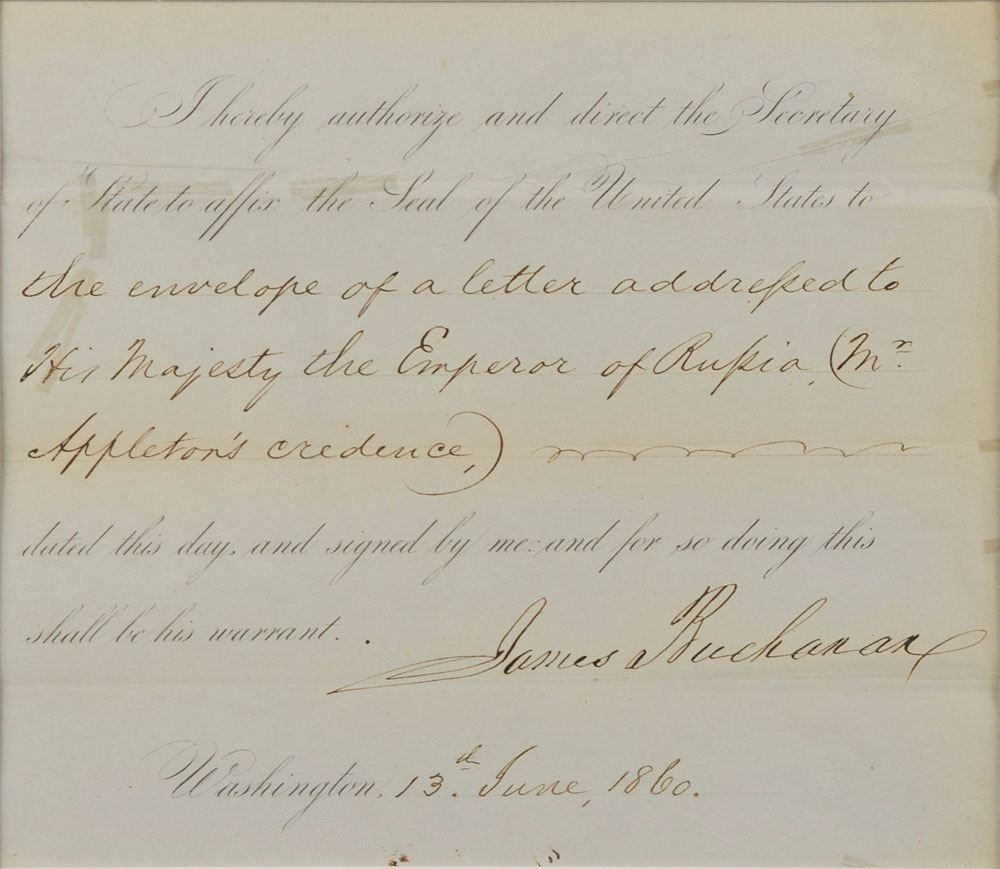 I hereby authorize and direct the Secretary
of State to affix the Seal of the United States to
the envelope of a letter addreſsed to
His Majesty the Emperor of Ruſsia, (Mr.
Appleton's credence,)
dated this day, and signed by me: and for so doing this
shall be his warrant.
James Buchanan
Washington, 13th. June, 1860.